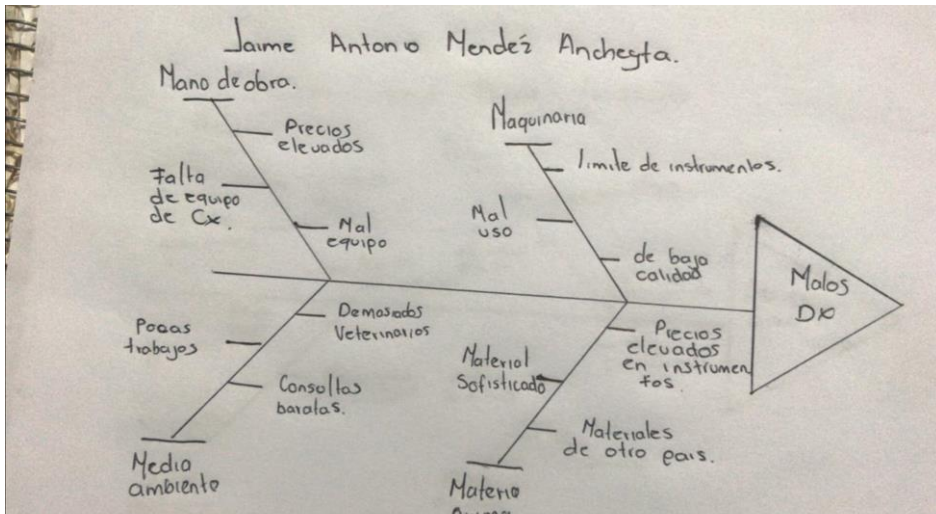 Jaime Antonio Mendéz Ancheyta.
Mano de obra.
Precios
elevados
Falta
de equipo
de Cx.
Mal
equipo
Maquinaria
limite de instrumentos.
Mal
uso
de baja
calidad
Malos
DX
Demasiados
Veterinarios
Pocas
trabajos
Consultas
baratas.
Medio
ambiente
Precios
elevados
en instrumen
tos.
Material
Sofisticado
Materiales
de otro pais.
Materia